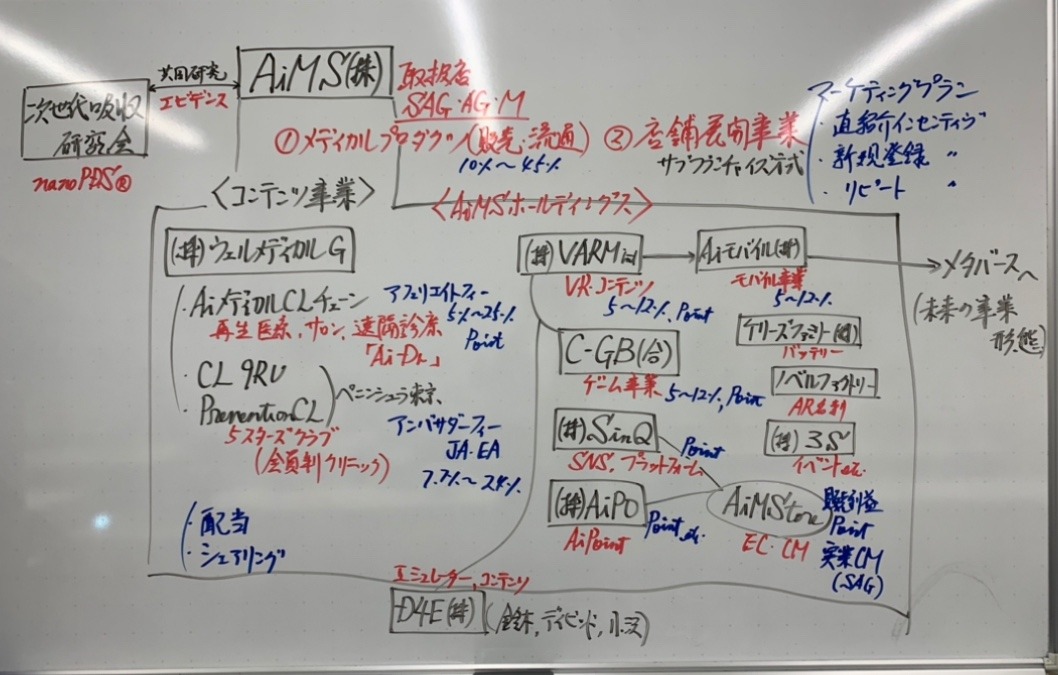 AiMS(株)
共同研究
エビデンス
次世代吸収
研究会
nanoPDS®
取扱店
SAG・AG・M
①メディカルプロダクツ(販売・流通)
10%～45%
②店舗展開事業
サブフランチャイズ方式
マーケティングプラン
・直紹介インセンティブ
・新規登録 〃
・リピート 〃
〈コンテンツ事業〉
〈AiMSホールディングス〉
(株)ウェルメディカルG
・AiメディカルCLチェーン
再生医療,サロン,遠隔診療
「Ai-Dr.」
アフェリエイトフィー
5%～25%
Point
・CL 9RU
・PreventionCL
ペニンシュラ東京
5スターズクラブ
(会員制クリニック)
アンバサダーフィー
JA・EA
7.7%～24%
・配当
・シェアリング
(株)VARM
VR・コンテンツ
5～12%, Point
Aiモバイル(株)
モバイル事業
5～12%
メタバースへ
(未来の事業
形態)
C-GB(合)
ゲーム事業
5～12%, Point
バッテリー
ノベルファクトリー
AR名刺
(株)SinQ
SNS, プラットフォーム
Point
(株)3S
イベントetc.
(株)AiPO
AiPoint
Point, etc.
AiMStore
EC・CM
販売利益
Point
実業CM
(SAG)
エミュレーター,コンテンツ
D4E(株)
(鈴木,デイビッド,小沢)